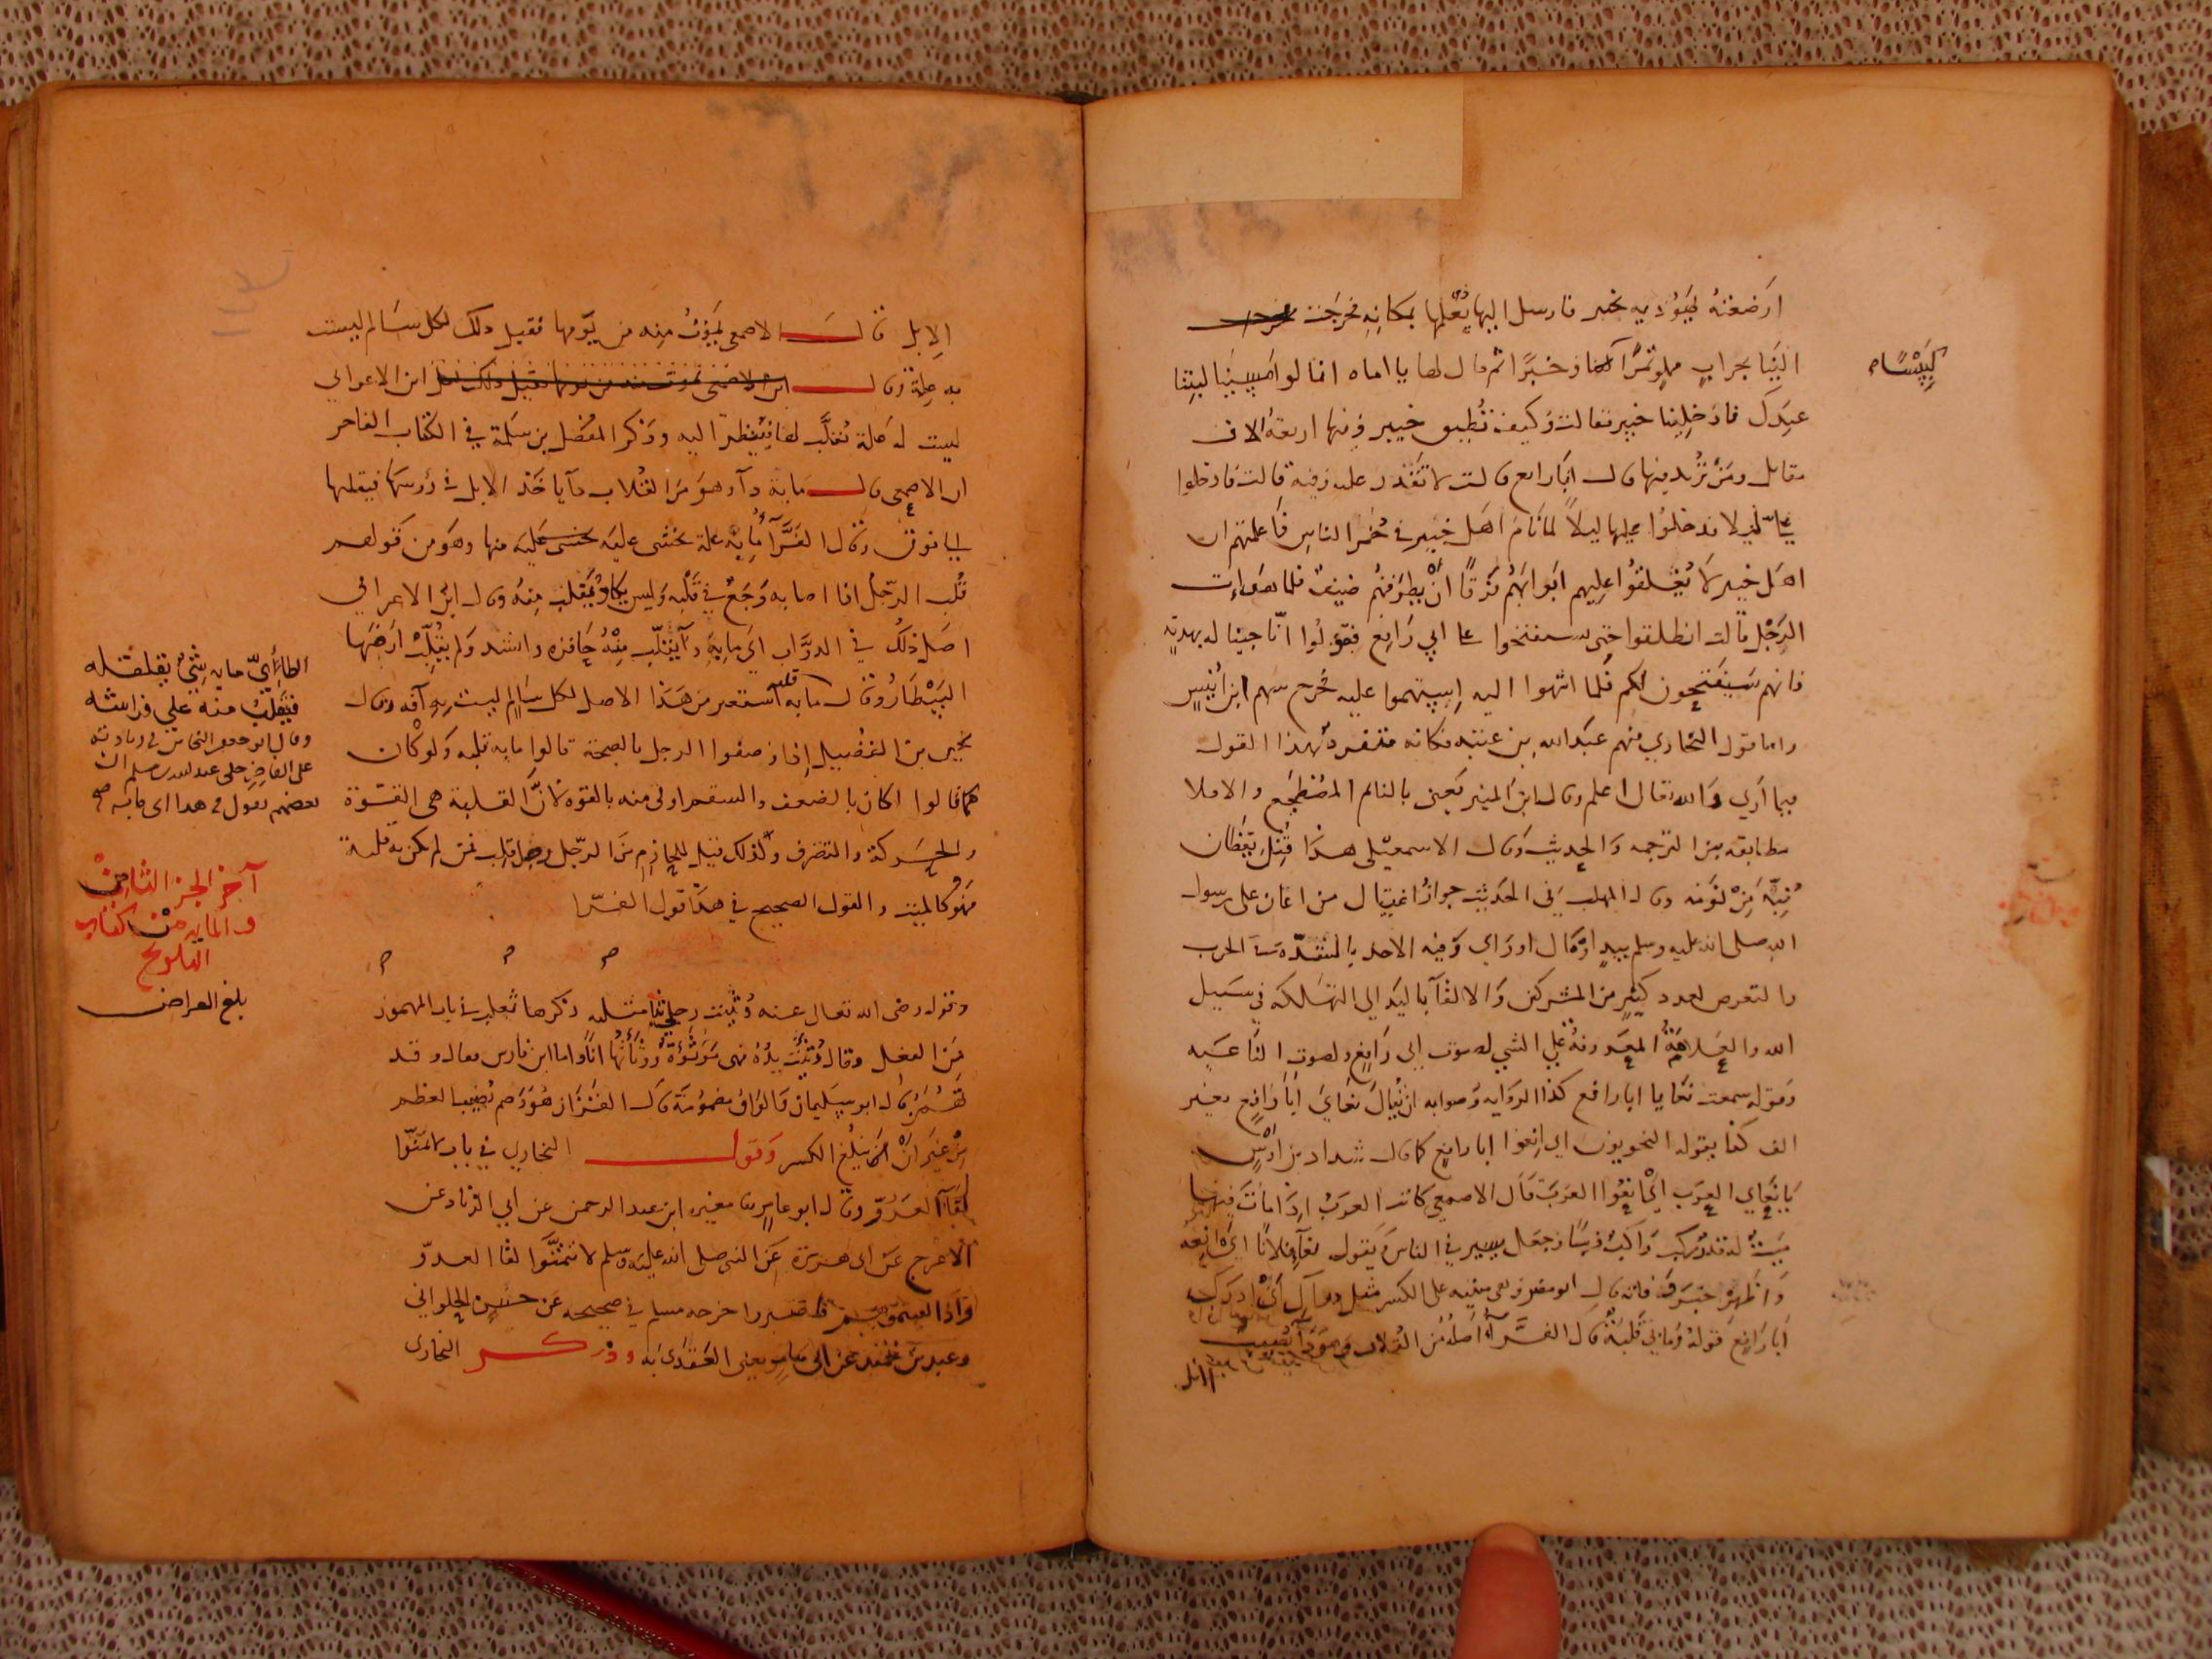 ارضعته يهودية بخيبر فارسل اليها يعلمها بمكانه فخرجت
الينا بجراب مملو تمرا وخبزا ثم قال لها يا اماه انا لو امسينا لبتنا
كبيسا
عندك فادخلينا خيبر فقالت وكيف تطيق خيبر وفيها اربعة الاف
مقاتل ومن تريد فيها قال ابا رافع قالت لا تقدر عليه وفيه قالت فادخلوا
علي ليلا فدخلوا عليها ليلا لما نام اهل خيبر في خمر الناس فاعلمتهم ان
اهل خيبر لا يغلقوا عليهم ابوابهم فرقا ان يطرقهم ضيف فلما هدات
الرجل قالت انطلقوا حتى تستفتحوا على ابي رافع فقولوا انا جينا له بهدية
فانهم سيفتحون لكم فلما انتهوا اليه استهموا عليه فخرج سهم ابن انيس
واما قول البخاري منهم عبد الله بن عتبة فكانه متفرد بهذا القول
فيما اري والله تعالى اعلم وقال ابن المنير يعني بالنائم المضطجع والا فلا
مطابقة بين الترجمة والحديث وقال الاسمعيلي هذا قتل يقظان
نبه من نومه وقال المهلب في الحديث جواز اغتيال من اعان على رسول
الله صلى الله عليه وسلم بيد او مال او راي وفيه الاخذ بالشدة في الحرب
والتعرض لعدد كثير من المشركين والالقا باليد الى التهلكة في سبيل
الله والعلامة المعروفة على الشي لصوت ابي رافع ولصوت الناعية
وقوله سمعت نعايا ابا رافع كذا الرواية وصوابه ان يقال نعاي ابا رافع بغير
الف كذا يقوله النحويون اي انعوا ابا رافع كما قال شداد بن اوس
يا نعاي العرب اي انعوا العرب قال الاصمعي كانت العرب اذا مات فيها
ميت له قدر ركب راكب فرسا وجعل يسير في الناس يقول نعا فلانا اي انعه
واظهر خبر وفاته قال ابو نصر وهي مبنية على الكسر مثل دراك اي ادرك
ابا رافع قوله وما بي قلبة قال الفرا اصله من القلاب وهو دا يصيب
الابل
الابل قال الاصمعي يموت منه من يومها فقيل ذلك لكل سالم ليست
به علة وقال ابن الاعرابي
ليست له علة تقلب لها فينظر اليه وذكر المفضل بن سلمة في الكتاب الفاخر
ان الاصمعي قال ما به دا وهو من القلاب دا ياخذ الابل في رؤسها فيقلبها
الى فوق وقال الفرا ما به علة يخشى عليه منها وهو من قولهم
قلب الرجل اذا اصابه وجع في قلبه وليس يكاد يقلب منه وقال ابن الاعرابي
اصل ذلك في الدواب اي ما به دا يقلب منه حافره وانشد ولم يقلب ارضها
البيطار وقال ما به قلبة استعير من هذا الاصل لكل سالم ليست به آفة وقال
يحيى بن الفضيل اذا وصفوا الرجل بالصحة قالوا ما به قلبة ولو كان
كما قالوا لكان بالضعف والسقم اولى منه بالقوة لان القلبة هي القوة
والحركة والتصرف وكذلك قيل للحازم من الرجل رجل قلب فمن لم يكن به قلبة
فهو كالميت والقول الصحيح في هذا قول الفرا
الطائي ما به شيئ يقلقله
فيتقلب منه على فراشه
وقال ابو جعفر النحاس في زياداته
على الفاخر حكى عبد الله بن مسلم ان
بعضهم يقول في هذا اي ما به
آخر الجز الثامن
والمايه من كتاب
التلويح
بلغ العراض
وقوله رضى الله تعالى عنه وثئت رجلي ذكرها ثعلب في باب المهموز
من الفعل وقال وثئت يده فهي موثوءة ووثأتها انا واما ابن فارس فقال وقد
تهمز قال ابو سليمان والواو مضمومة قال القزاز هو وصم يصيب العظم
من غير ان يبلغ الكسر وقول البخاري في باب لا تمنوا
لقا العدو وقال ابو عامر ثنا مغيرة ابن عبد الرحمن عن ابي الزناد عن
الاعرج عن ابي هريرة عن النبي صلى الله عليه وسلم لا تتمنوا لقا العدو
واذا لقيتموهم فاصبروا خرجه مسلم في صحيحه عن حسن الحلواني
وعبد بن حميد عن ابي عامر يعني العقدي به وذكر البخارى